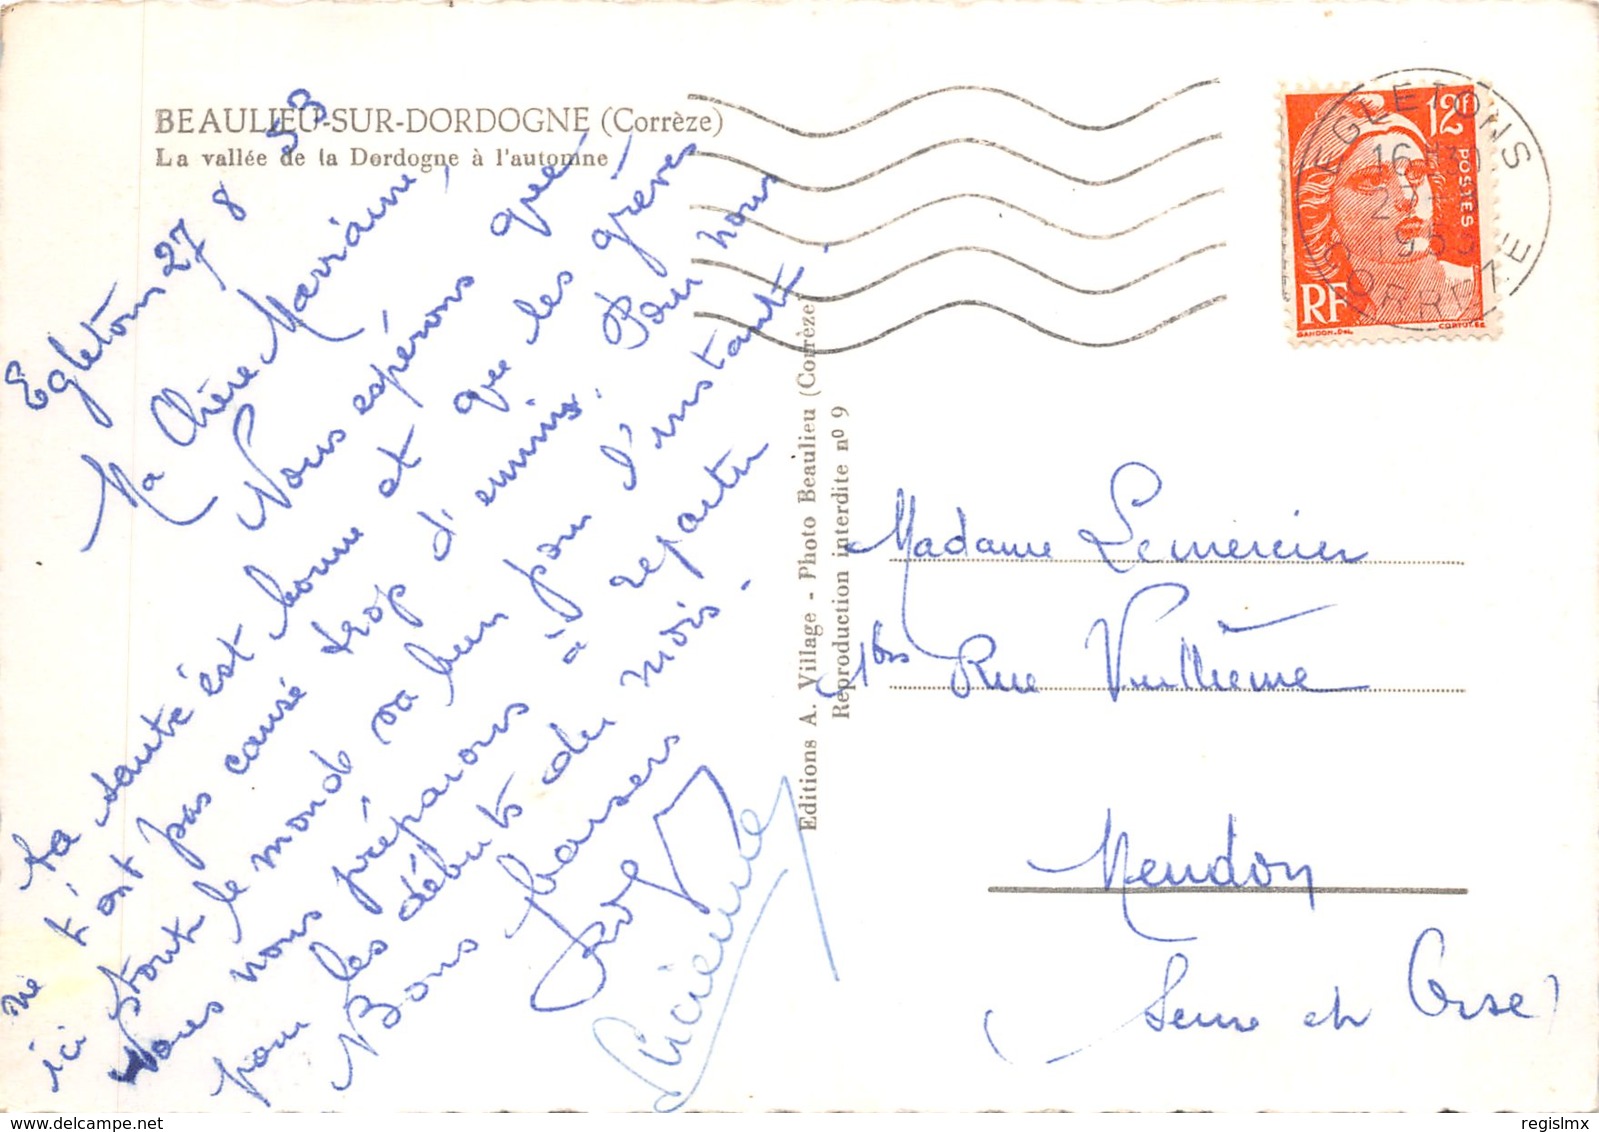 BEAULIEU-SUR-DORDOGNE (Corrèze)
La vallée de la Dordogne à l'automne
Egletons 27 8 53
Ma Chère Marraine,
Nous espérons que
ta santé est bonne et que les grèves
ne t'ont pas causé trop d'ennuis. Pour nous
ici tout le monde va bien pour l'instant.
Nous nous préparons à repartir
pour les débuts du mois.
Bons baisers
Lucienne
Editions A. Village - Photo Beaulieu (Corrèze)
Reproduction interdite nº 9
EGLETONS
16 H30
1953
CORREZE
12F
POSTES
RF
GANDON.Del.
CORTOT.SC
Madame Lemercier
Rue
Meudon
(Seine et Oise)
regislmx